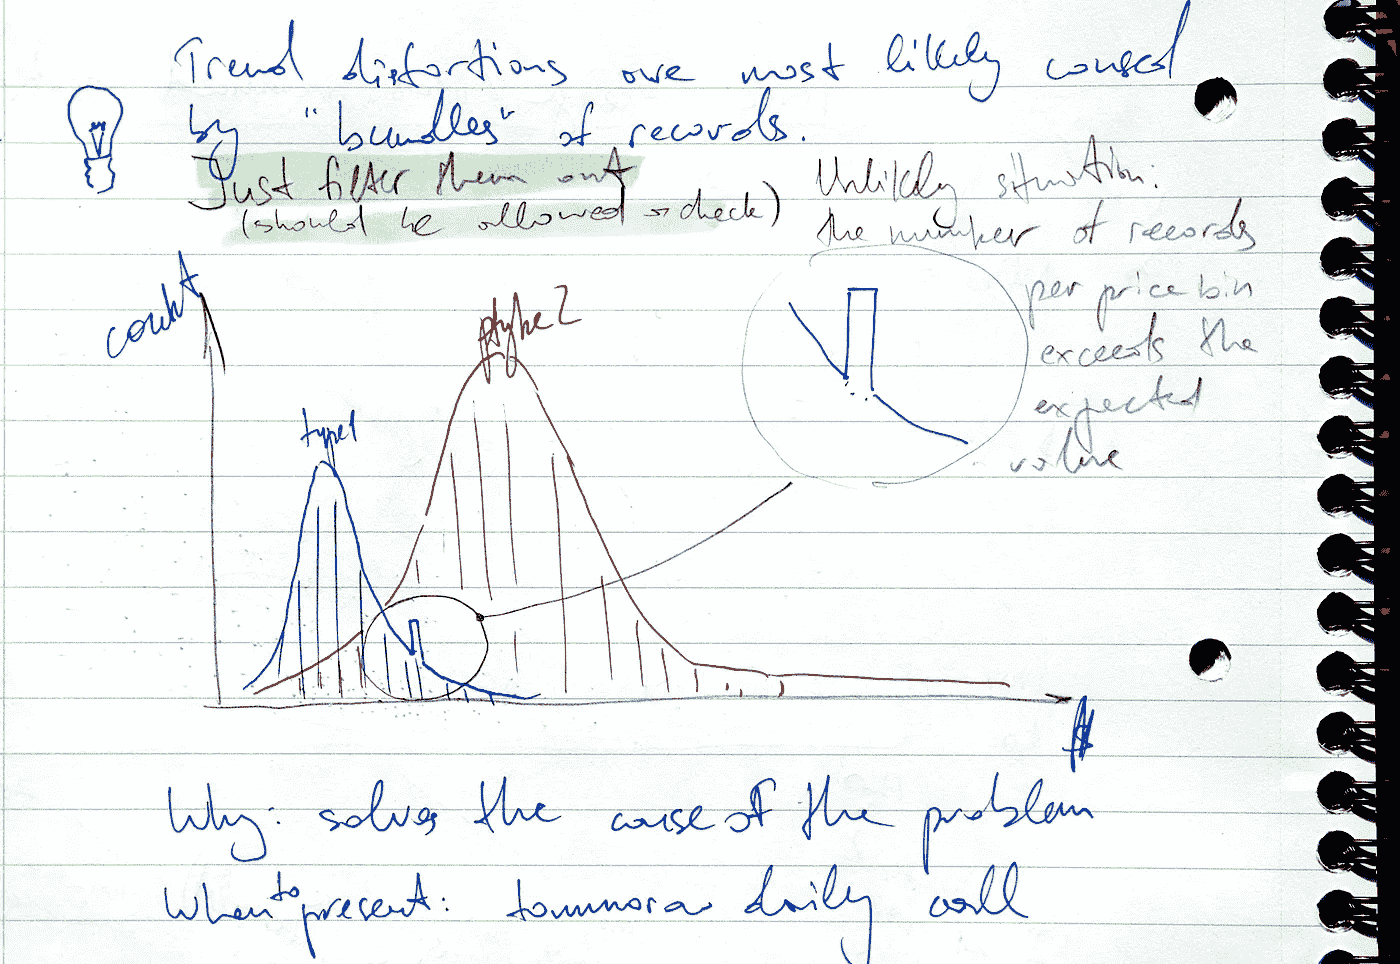 Trend distortions are most likely caused
by "bundles" of records.
Just filter them out
(should be allowed → check)
Unlikely situation:
the number of records
per price bin
exceeds the
expected
value
count
type 1
type 2
Why: solves the cause of the problem
When to present: tommorow daily call